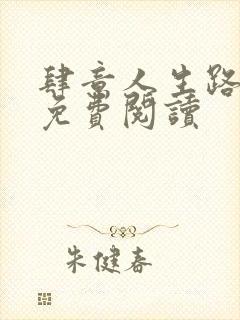 肆意人生路
免費閱讀
朱健春